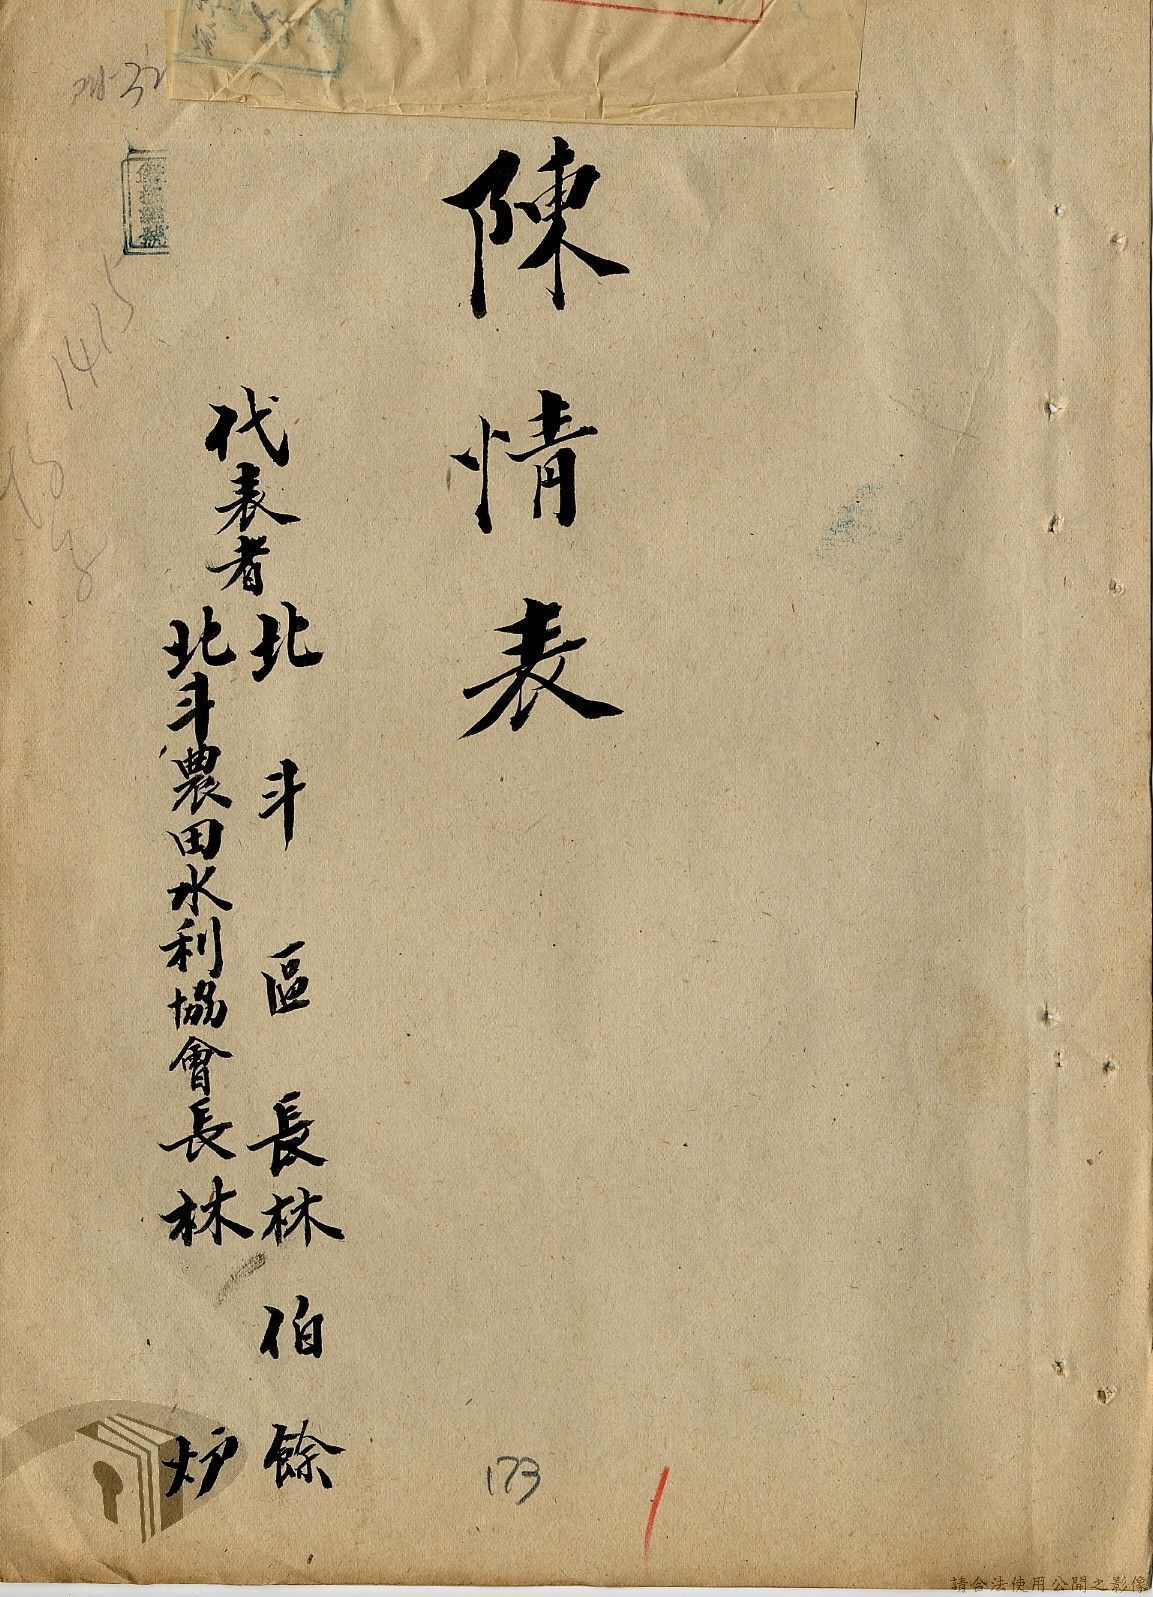 陳情表
代表者
北斗區長林伯餘
北斗農田水利協會長林炉
1415
173
請合法使用公開之影像